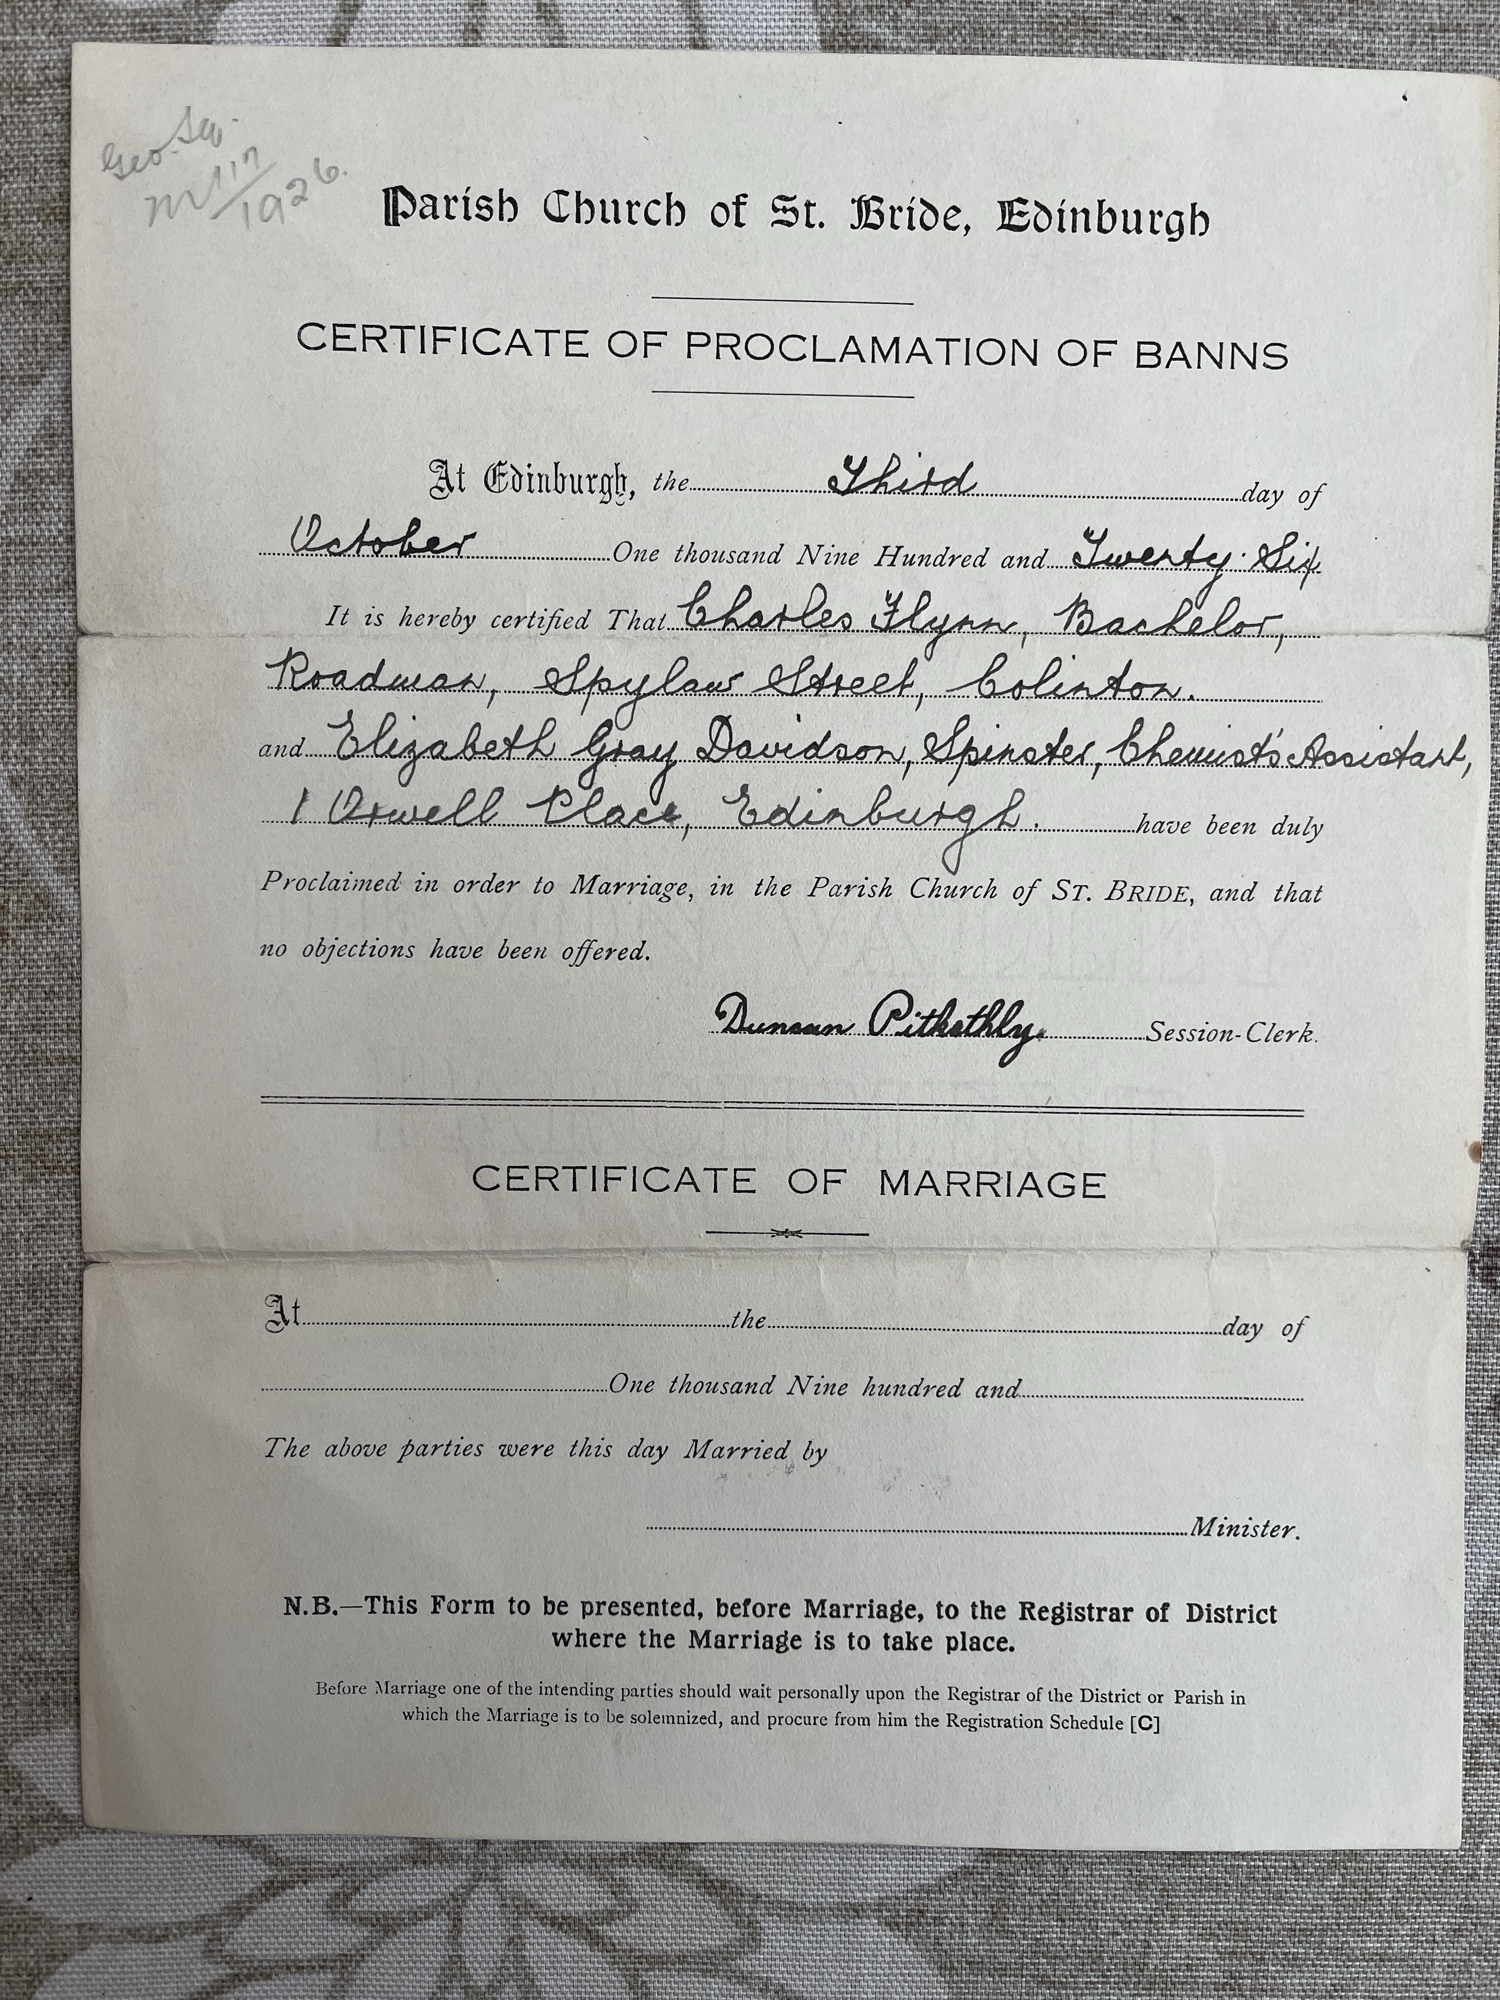 Geo. Sq.
M 117/1926.
Parish Church of St. Bride, Edinburgh
CERTIFICATE OF PROCLAMATION OF BANNS
At Edinburgh, the Third day of
October One thousand Nine Hundred and Twenty Six
It is hereby certified That Charles Flynn, Bachelor,
Roadman, Spylaw Street, Colinton.
and Elizabeth Gray Davidson, Spinster, Chemist's Assistant,
1 Orwell Place, Edinburgh. have been duly
Proclaimed in order to Marriage, in the Parish Church of ST. BRIDE, and that
no objections have been offered.
Duncan Pitkethly. Session-Clerk.
CERTIFICATE OF MARRIAGE
At the day of
One thousand Nine hundred and
The above parties were this day Married by
Minister.
N.B.—This Form to be presented, before Marriage, to the Registrar of District
where the Marriage is to take place.
Before Marriage one of the intending parties should wait personally upon the Registrar of the District or Parish in
which the Marriage is to be solemnized, and procure from him the Registration Schedule [C]